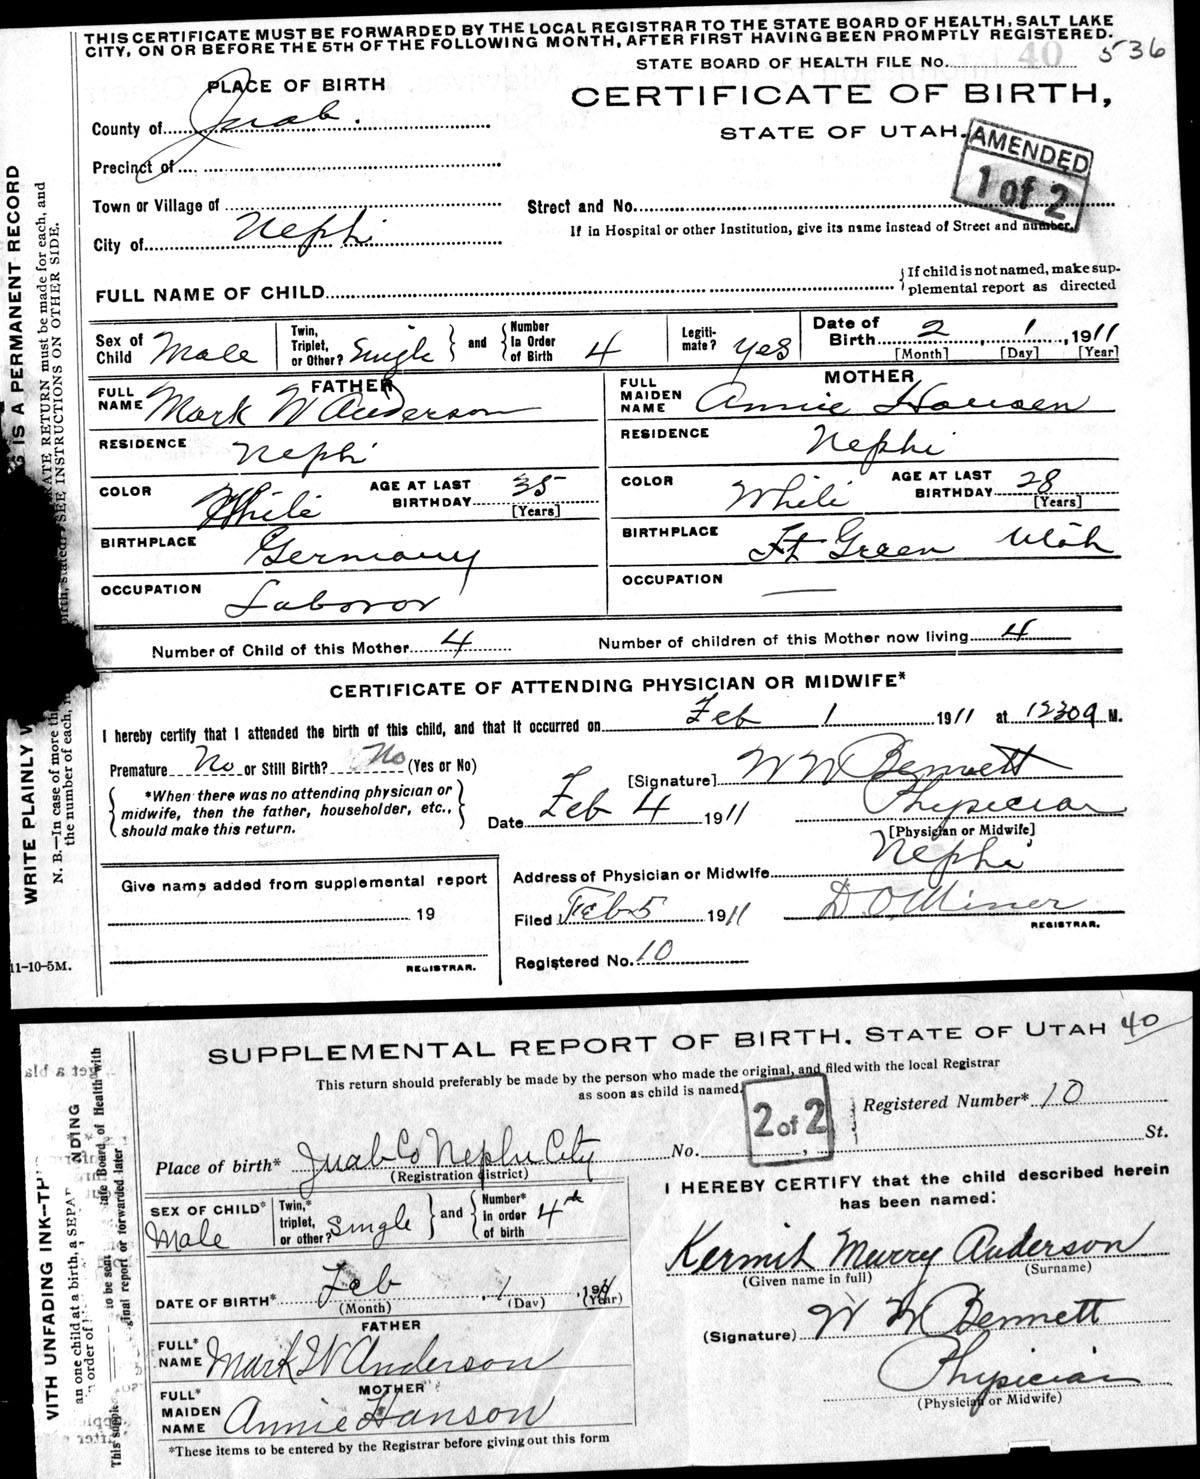 THIS CERTIFICATE MUST BE FORWARDED BY THE LOCAL REGISTRAR TO THE STATE BOARD OF HEALTH, SALT LAKE
CITY, ON OR BEFORE THE 5TH OF THE FOLLOWING MONTH, AFTER FIRST HAVING BEEN PROMPTLY REGISTERED.
STATE BOARD OF HEALTH FILE No. 40 536
PLACE OF BIRTH
CERTIFICATE OF BIRTH,
County of Juab.
STATE OF UTAH.
AMENDED
1 of 2
Precinct of
Town or Village of
Street and No.
City of Nephi
If in Hospital or other Institution, give its name instead of Street and number.
FULL NAME OF CHILD
If child is not named, make sup-
plemental report as directed
Sex of Child Male
Twin, Triplet, or Other? Single
and Number in Order of Birth 4
Legiti- mate? yes
Date of Birth 2, 1, 1911
[Month] [Day] [Year]
FATHER
FULL NAME Mark W Anderson
RESIDENCE Nephi
COLOR White AGE AT LAST BIRTHDAY 35 [Years]
BIRTHPLACE Germany
OCCUPATION Laboror
MOTHER
FULL MAIDEN NAME Annie Hansen
RESIDENCE Nephi
COLOR White AGE AT LAST BIRTHDAY 28 [Years]
BIRTHPLACE Ft Green Utah
OCCUPATION —
Number of Child of this Mother 4 Number of children of this Mother now living 4
CERTIFICATE OF ATTENDING PHYSICIAN OR MIDWIFE*
I hereby certify that I attended the birth of this child, and that it occurred on Feb 1 1911 at 1230 a M.
Premature No or Still Birth? No (Yes or No)
[Signature] W W Bennett
*When there was no attending physician or
midwife, then the father, householder, etc.,
should make this return.
Date Feb 4 1911
Physician
[Physician or Midwife]
Address of Physician or Midwife Nephi
Give name added from supplemental report
19
REGISTRAR.
Filed Feb 5 1911 D. O. Miner
REGISTRAR.
Registered No. 10
11-10-5M.
IS A PERMANENT RECORD
WRITE PLAINLY
N. B.—In case of more
RATE RETURN must be made for each, and
the number of each,
SEE INSTRUCTIONS ON OTHER SIDE.
SUPPLEMENTAL REPORT OF BIRTH, STATE OF UTAH 40
This return should preferably be made by the person who made the original, and filed with the local Registrar
as soon as child is named.
2 of 2
Registered Number* 10
Place of birth* Juab Co Nephi City
(Registration district)
No. , St.
SEX OF CHILD* Male
Twin,* triplet, or other? Single
and Number* in order of birth 4th
DATE OF BIRTH* Feb, 1, 1911
(Month) (Day) (Year)
FATHER
FULL* NAME Mark W Anderson
MOTHER
FULL* MAIDEN NAME Annie Hanson
*These items to be entered by the Registrar before giving out this form
I HEREBY CERTIFY that the child described herein
has been named:
Kermit Murry Anderson
(Given name in full) (Surname)
(Signature) W W Bennett
Physician
(Physician or Midwife)
WITH UNFADING INK—TH